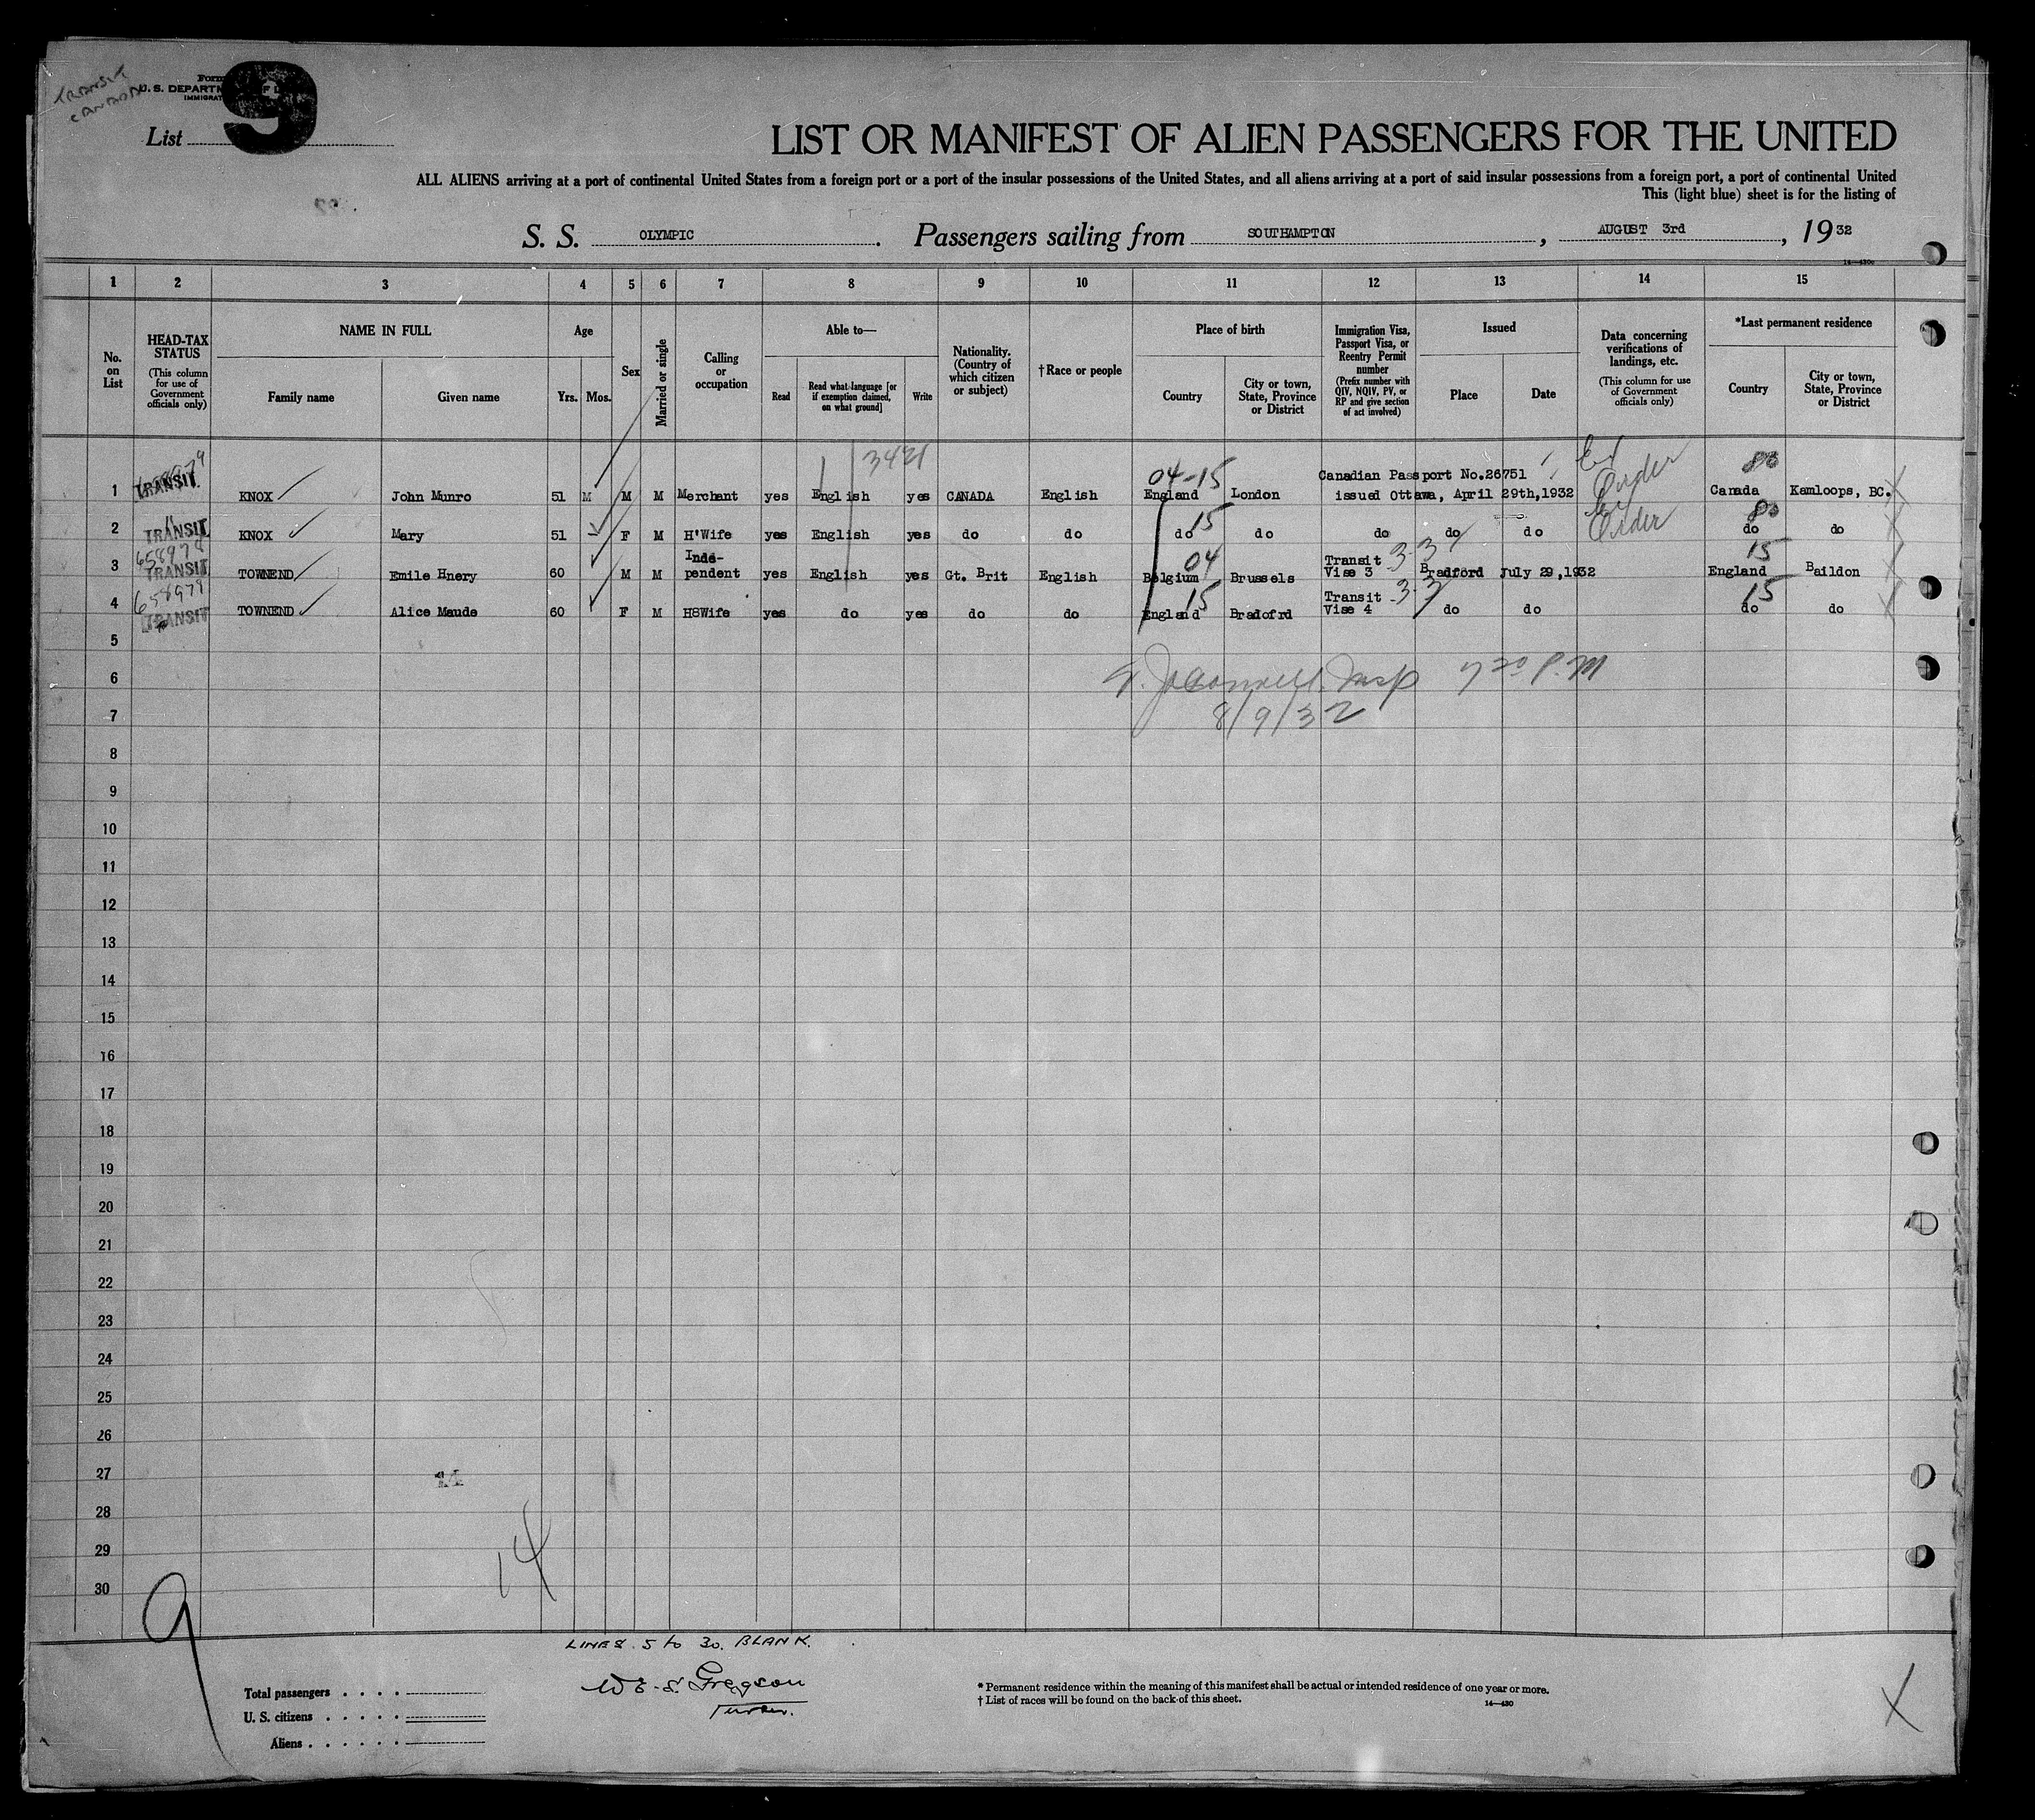 TRANSIT
CANADA
Form
U. S. DEPARTM OF L
IMMIGRAT
9
List
LIST OR MANIFEST OF ALIEN PASSENGERS FOR THE UNITED
ALL ALIENS arriving at a port of continental United States from a foreign port or a port of the insular possessions of the United States, and all aliens arriving at a port of said insular possessions from a foreign port, a port of continental United
This (light blue) sheet is for the listing of
S. S. OLYMPIC. Passengers sailing from SOUTHAMPTON, AUGUST 3rd, 1932
1 2 3 4 5 6 7 8 9 10 11 12 13 14 15
No. on List
HEAD-TAX STATUS
(This column for use of Government officials only)
NAME IN FULL
Family name
Given name
Age
Yrs.
Mos.
Sex
Married or single
Calling or occupation
Able to—
Read
Read what language [or if exemption claimed, on what ground]
Write
Nationality. (Country of which citizen or subject)
† Race or people
Place of birth
Country
City or town, State, Province or District
Immigration Visa, Passport Visa, or Reentry Permit number
(Prefix number with QIV, NQIV, PV, or RP and give section of act involved)
Issued
Place
Date
Data concerning verifications of landings, etc.
(This column for use of Government officials only)
*Last permanent residence
Country
City or town, State, Province or District
3421
04-15
80
1 TRANSIT KNOX John Munro 51 M M M Merchant yes English yes CANADA English England London Canadian Passport No.26751 issued Ottawa, April 29th,1932 Order Canada Kamloops, BC.
15 80
2 TRANSIT KNOX Mary 51 F M H'Wife yes English yes do do do do do do do Order do do
658979 04 3-3 15
3 TRANSIT TOWNEND Emile Hnery 60 M M Inde-pendent yes English yes Gt. Brit English Belgium Brussels Transit Vise 3 Bradford July 29,1932 England Baildon
658979 15 3-3 15
4 TRANSIT TOWNEND Alice Maude 60 F M HSWife yes do yes do do England Bradofrd Transit Vise 4 do do do do
5
6
Insp 7 30 P.M
7
8/9/32
8
9
10
11
12
13
14
15
16
17
18
19
20
21
22
23
24
25
26
27
14
28
29
14
30
9
LINES 5 to 30. BLANK.
W E. S. Greggson
Purser.
Total passengers
U. S. citizens
Aliens
* Permanent residence within the meaning of this manifest shall be actual or intended residence of one year or more.
† List of races will be found on the back of this sheet.
14—430